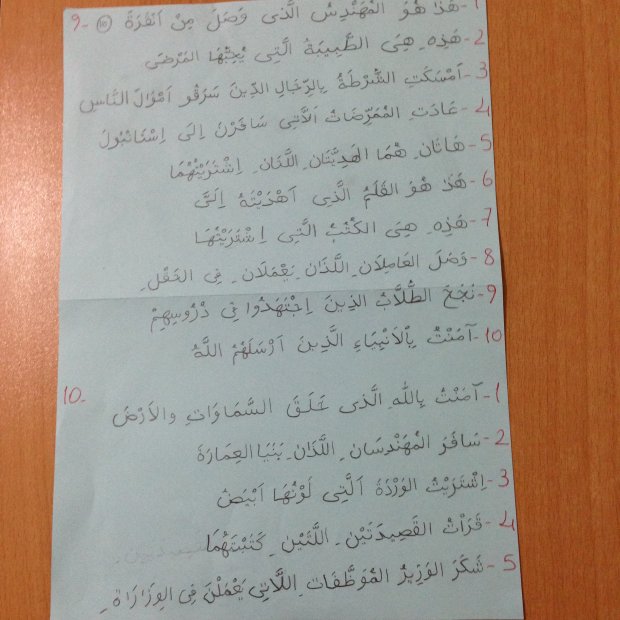 9- ⑯ 1- هَذَا هُوَ المُهَنْدِسُ الَّذِى وَصَلَ مِنْ اَنْقَرَةَ
2- هَذِهِ هِىَ الطَّبِيبَةُ الَّتِى يُحِبُّهَا المَرْضَى
3- اَمْسَكَتِ الشُّرْطَةُ بِالرِّجَالِ الدِّينَ سَرَقُو اَمْوَالَ النَّاسِ
4- عَادَتِ المُمَرِّضَاتُ اَلاَّتِى سَافَرْنَ اِلَى اِسْتَانْبُولَ
5- هَاتَانِ هُمَا الهَدِيَّتَانِ اللَّتَانِ اِشْتَرَيْتُهُمَا
6- هَذَا هُوَ القَلَمُ الَّذِى اَهْدَيْتَهُ اِلَىَّ
7- هَذِهِ هِىَ الكُتُبُ الَّتِى اِشْتَرَيْتُهَا
8- وَصَلَ العَامِلاَنِ اللَّذَانِ يَعْمَلاَنِ فِى الحَقْلِ
9- نَجَحَ الطُّلاَّبُ الَّذِينَ اِجْتَهَدُوا فِى دُرُوسِهِمْ
10- آمَنْتُ بِالْاَنْبِيَاءِ الَّذِينَ اَرْسَلَهُمُ اللَّهُ
10- 1- آمَنْتُ بِاللهِ الَّذِى خَلَقَ السَّمَاوَاتِ والاَرْضَ
2- سَافَرَ المُهَنْدِسَانِ اللَّذَانِ بَنَيَا العِمَارَةَ
3- اِشْتَرَيْتُ الوَرْدَةَ اَلَّتِى لَوْنُهَا اَبْيَضُ
4- قَرَأْتُ القَصِيدَتَيْنِ اللَّتَيْنِ كَتَبْتَهُمَا
5- شَكَرَ الوَزِيرُ المُوَظَّفَاتِ اللَّاتِى يَعْمَلْنَ فِى الوِزَارَاةِ